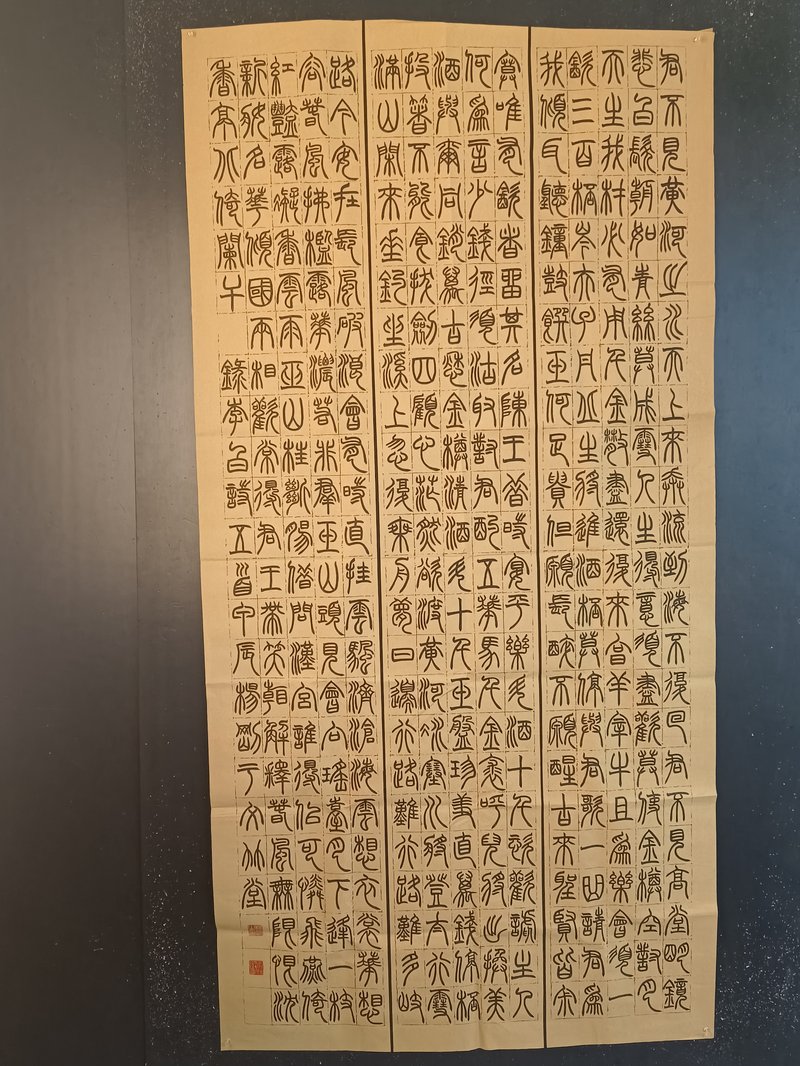 君不見黃河之水天上來奔流到海不復回君不見高堂明鏡
悲白髮朝如青絲莫成雪人生得意須盡歡莫使金樽空對月
天生我材必有用千金散盡還復來烹羊宰牛且為樂會須一
飲三百杯岑夫子丹丘生將進酒杯莫停與君歌一曲請君為
我傾耳聽鐘鼓饌玉何足貴但願長醉不願醒古來聖賢皆寂
寞唯有飲者留其名陳王昔時宴平樂斗酒十千恣歡謔主人
何為言少錢徑須沽取對君酌五華馬千金裘呼兒將出換美
酒與爾同銷萬古愁金樽清酒斗十千玉盤珍羞直萬錢停杯
投箸不能食拔劍四顧心茫然欲渡黃河冰塞川將登太行雪
滿山閑來垂釣坐溪上忽復乘舟夢日邊行路難行路難多歧
路今安在長風破浪會有時直挂雲帆濟滄海雲想衣裳華想
容春風拂檻露華濃若非群玉山頭見會向瑤臺月下逢一枝
紅豔露凝香雲雨巫山枉斷腸借問漢宮誰得似可憐飛燕倚
新妝名華傾國兩相歡常得君王帶笑看解釋春風無限恨沈
香亭北倚闌干 錄李白詩五首甲辰楊剛于文竹堂